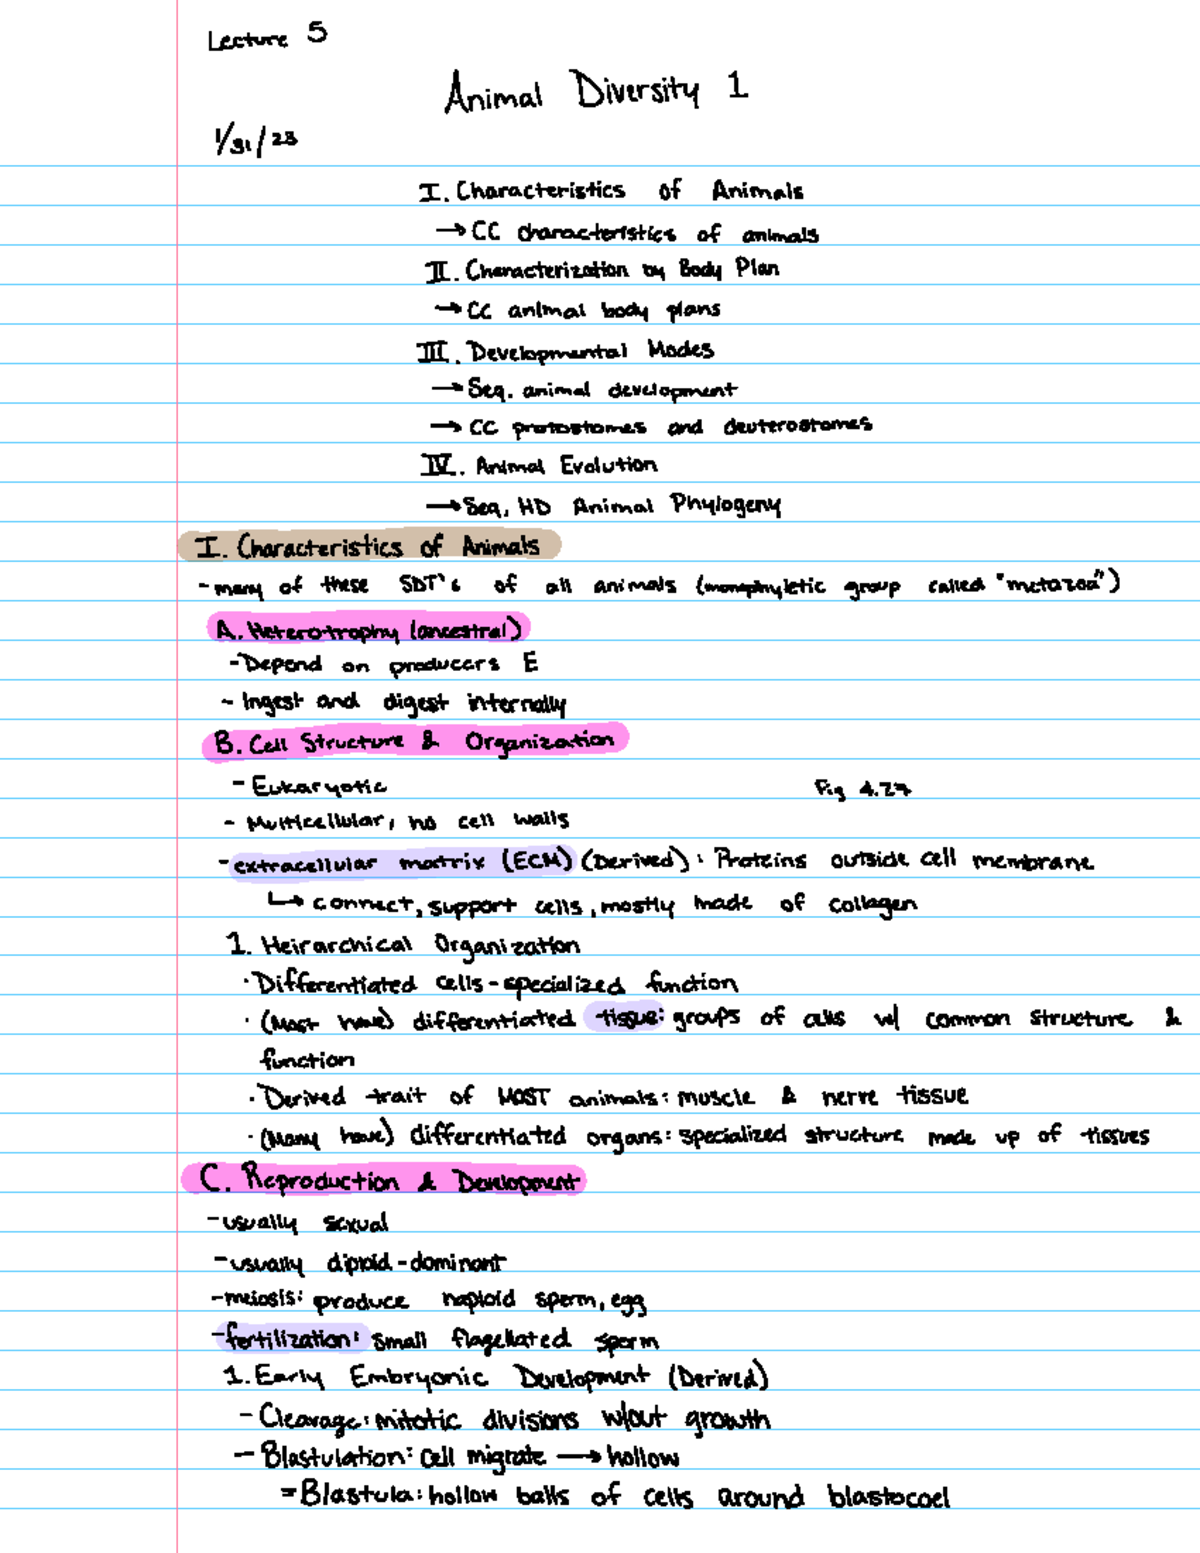 Lecture 5
Animal Diversity 1
1/31/23
I. Characteristics of Animals
→ CC characteristics of animals
II. Characterization by Body Plan
→ CC animal body plans
III. Developmental Modes
→ Seq. animal development
→ CC protostomes and deuterostomes
IV. Animal Evolution
→ Seq, HD Animal Phylogeny
I. Characteristics of Animals
- many of these SDT's of all animals (monophyletic group called "metazoa")
A. Heterotrophy (ancestral)
- Depend on producers E
- Ingest and digest internally
B. Cell Structure & Organization
- Eukaryotic Fig 4.27
- Multicellular, no cell walls
- extracellular matrix (ECM) (Derived): Proteins outside cell membrane
↳ connect, support cells, mostly made of collagen
1. Heirarchical Organization
· Differentiated cells - specialized function
· (Most have) differentiated tissue: groups of cells w/ common structure &
function
· Derived trait of MOST animals: muscle & nerve tissue
· (Many have) differentiated organs: specialized structure made up of tissues
C. Reproduction & Development
- usually sexual
- usually diploid-dominant
- meiosis: produce haploid sperm, egg
- fertilization: small flagellated sperm
1. Early Embryonic Development (Derived)
- Cleavage: mitotic divisions w/out growth
- Blastulation: cell migrate → hollow
= Blastula: hollow balls of cells around blastocoel